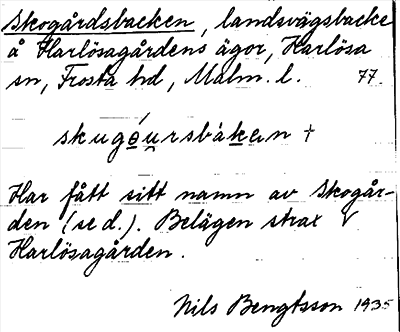 Skogårdsbacken, landsvägsbacke
å Harlösagårdens ägor, Harlösa
sn, Frosta hd, Malm. l. 77.
skugǫ́u̯rsbàken †
Har fått sitt namn av Skogår-
den (se d.). Belägen strax V
Harlösagården.
Nils Bengtsson 1935